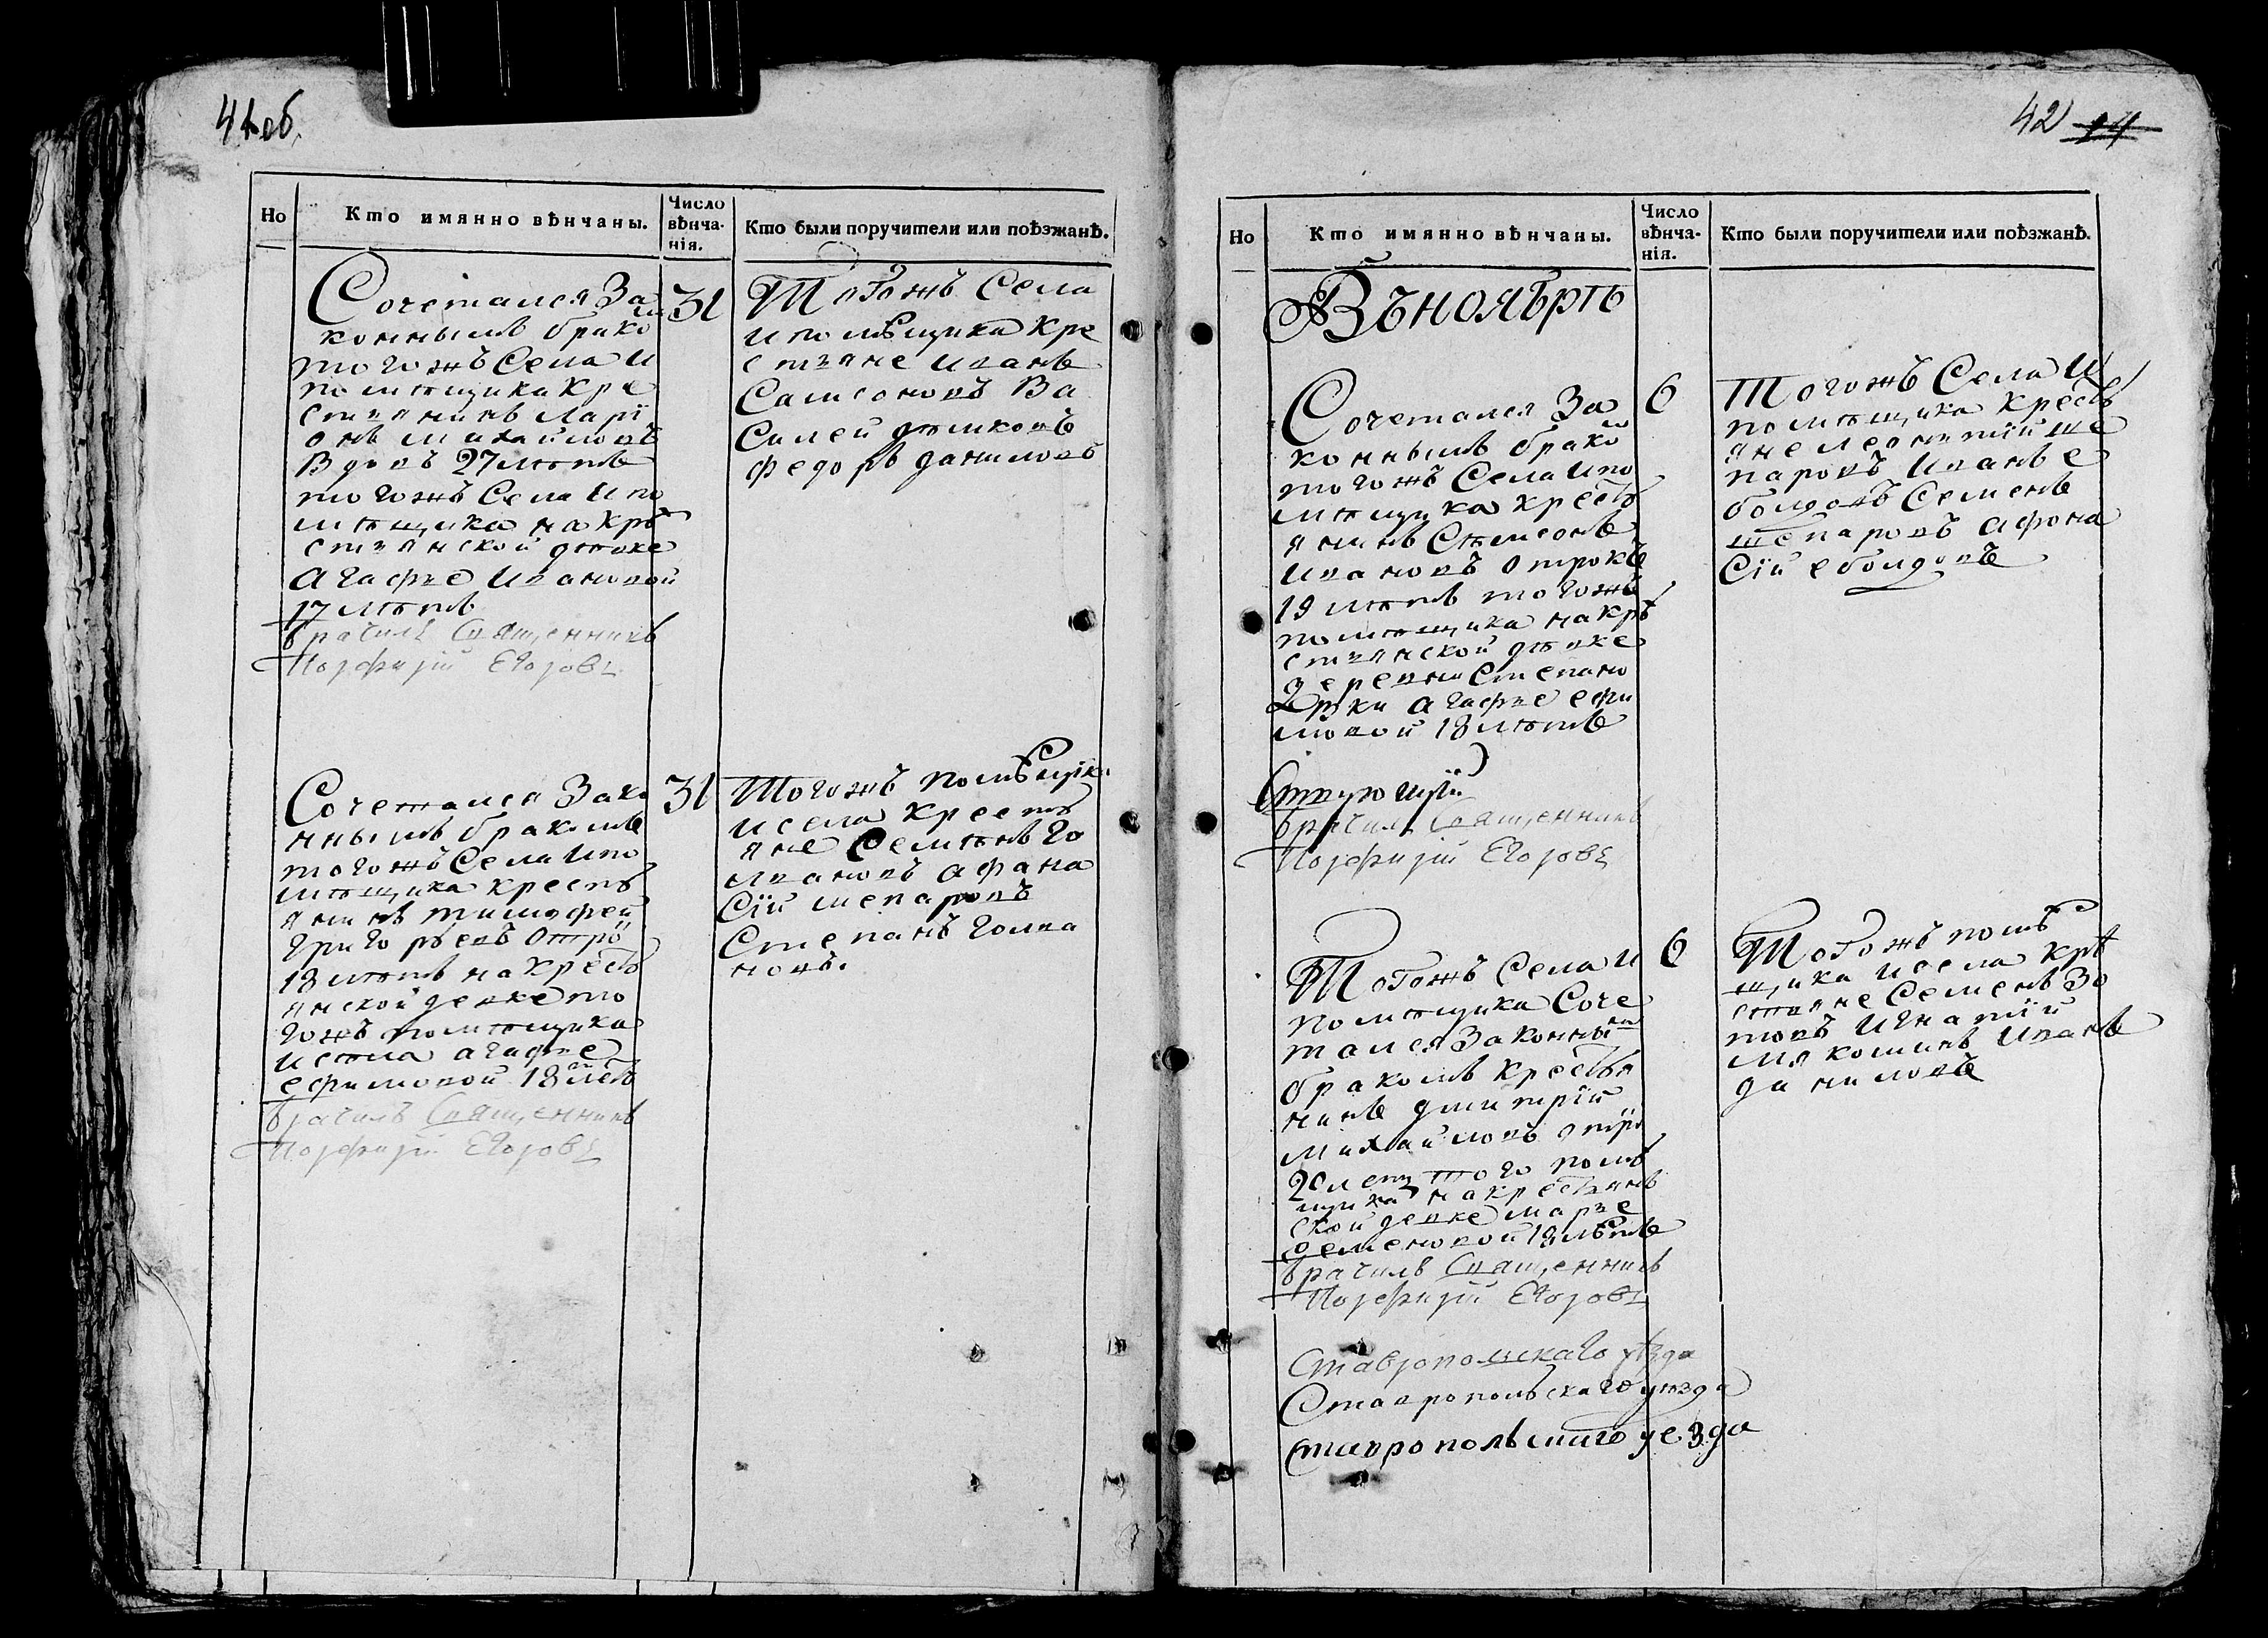 41 об.
Но
Кто имянно вѣнчаны.
Число вѣнча-нія.
Кто были поручители или поѣзжанѣ.
Сочетался За
коннымъ бракомъ
тогожъ Села и
помѣщика Кре
стьянинъ Ларі
онъ михайловъ
Вдовъ 27 лѣтъ
тогожъ Села и по
мѣщика на кре
стьянской дѣвке
Агафье Ивановой
17 лѣтъ
Врачилъ Священникъ
Порфирій Егоровъ
31
Тогожъ Села
и помѣщика Кре
стьяне Иванъ
Самсоновъ Ва
Силей
Федоръ даниловъ
Сочетался Зако
ннымъ бракомъ
тогожъ Села и по
мѣщика крестъ
янинъ тимофей
григорьевъ отро
18 лѣтъ на крестъ
янской девке то
гожъ помѣщика
и села агафье
ефимовой 18 лѣтъ
Врачилъ Священникъ
Порфирій Егоровъ
31
Тогожъ помѣщика
и села Крестъ
яне Семѣнъ Го
ловановъ Афана
Сій шепаровъ
Степанъ голва
новъ.
42 14
Но
Кто имянно вѣнчаны.
Число вѣнча-нія.
Кто были поручители или поѣзжанѣ.
Въ ноябрѣ
Сочетался За
коннымъ бракомъ
тогожъ Села и по
мѣщика крестъ
янинъ Сѣмсонъ
Ивановъ отрокъ
19 лѣтъ тогожъ
помѣщика на кре
стьянской дѣвке
деревни Степано
вки агафье ефи
мовой 18 лѣтъ
Врачилъ Священникъ
Порфирій Егоровъ
6
Тогожъ Села И
помѣщика Крестъ
яне леонтій ше
паровъ Иванъ е
болдовъ Семенъ
шепаровъ афона
Сій еболдовъ
Тогожъ Села и
помѣщика Соче
тался Законнымъ
бракомъ Крестья
нинъ дмитрій
михайловъ отро
20 лет того помѣ
щика на крестьянъ
ской девке марье
Семеновой 18 лѣтъ
Врачилъ Священникъ
Порфирій Егоровъ
6
Тогожъ помѣ
щика и села Кре
стьяне Семенъ Зо
товъ Игнатій
мякошинъ Иванъ
даниловъ
Ставропольскаго уѣзда
Ставропольскаго уѣзда
ставропольскаго уезда